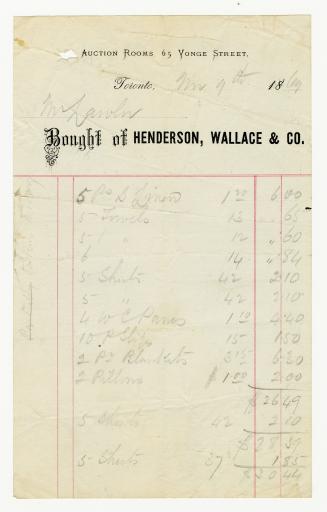 Auction Rooms 65 Yonge Street,
Toronto, 9th 1869
Mr
Bought of HENDERSON, WALLACE & CO.
5 Ps S Linen 1 20 6 00
5 Towels 13 " 65
5 " 12 " 60
6 14 " 84
5 Shirts 42 2 10
5 " 42 2 10
4 W C Pans 1 10 4 40
10 P Slips 15 1 50
2 Pr Blankets 3 15 6 30
2 Pillows $1.00 2 00
$26 49
5 Shirts 42 2 10
$28 59
5 Shirts 37 1 85
$30 44